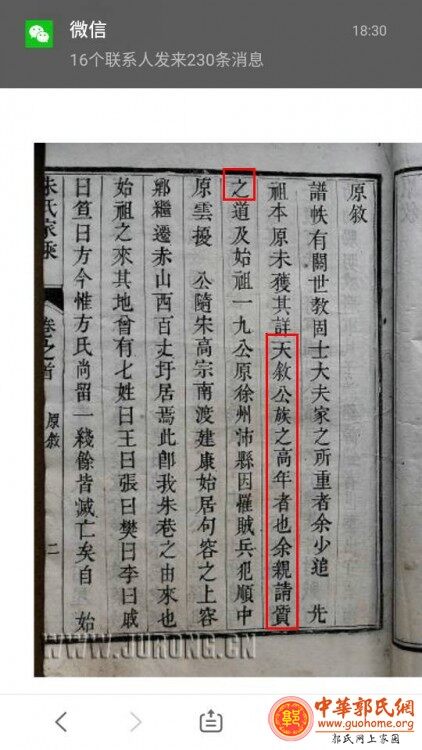 微信
18:30
16个联系人发来230条消息
原敘
譜帙有關世教固士大夫家之所重者余少追 先
祖本原未獲其詳天敘公族之高年者也余親請質
之道及始祖一九公原徐州沛縣因罹賊兵犯順中
原雲擾 公隨宋高宗南渡建康始居句容之上容
鄉繼遷赤山西百丈圩居焉此卽我朱巷之由來也
始祖之來其地曾有七姓曰王曰張曰樊曰李曰戚
曰笪曰方今惟方氏尚留一綫餘皆滅亡矣自 始
朱氏家乘
卷之首
原敘
二
WWW.JURONG.CN
中華郭氏網
www.guohome.org
郭氏网上家園